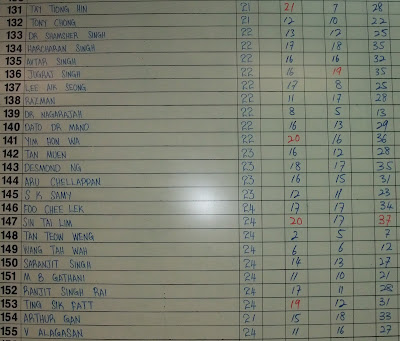 131 TAY TIONG HIN 21 21 7 28
132 TONY CHONG 21 12 10 22
133 DR SHAMSHER SINGH 22 13 12 25
134 HARCHARAN SINGH 22 17 18 35
135 AVTAR SINGH 22 16 16 32
136 JUGRAJ SINGH 22 16 19 35
137 LEE AIK SEONG 22 17 8 25
138 RAZMAN 22 11 17 28
139 DR NAGARAJAH 22 8 5 13
140 DATO DR MANO 22 16 13 29
141 YIM HON WA 22 20 16 36
142 TAN MOEN 23 16 12 28
143 DESMOND NG 23 18 17 35
144 ABU CHELLAPPAN 23 16 15 31
145 S K SAMY 23 12 11 23
146 FOO CHEE LEK 24 17 17 34
147 SIN TAI LIM 24 20 17 37
148 TAN TEOW WENG 24 2 5 7
149 WANG TAH WAH 24 6 6 12
150 SARANJIT SINGH 24 14 13 27
151 M B GATHANI 24 11 10 21
152 RANJIT SINGH RAI 24 17 11 28
153 TING SIK FATT 24 19 12 31
154 ARTHUR GAN 21 15 18 33
155 V ALAGASAN 24 11 16 27